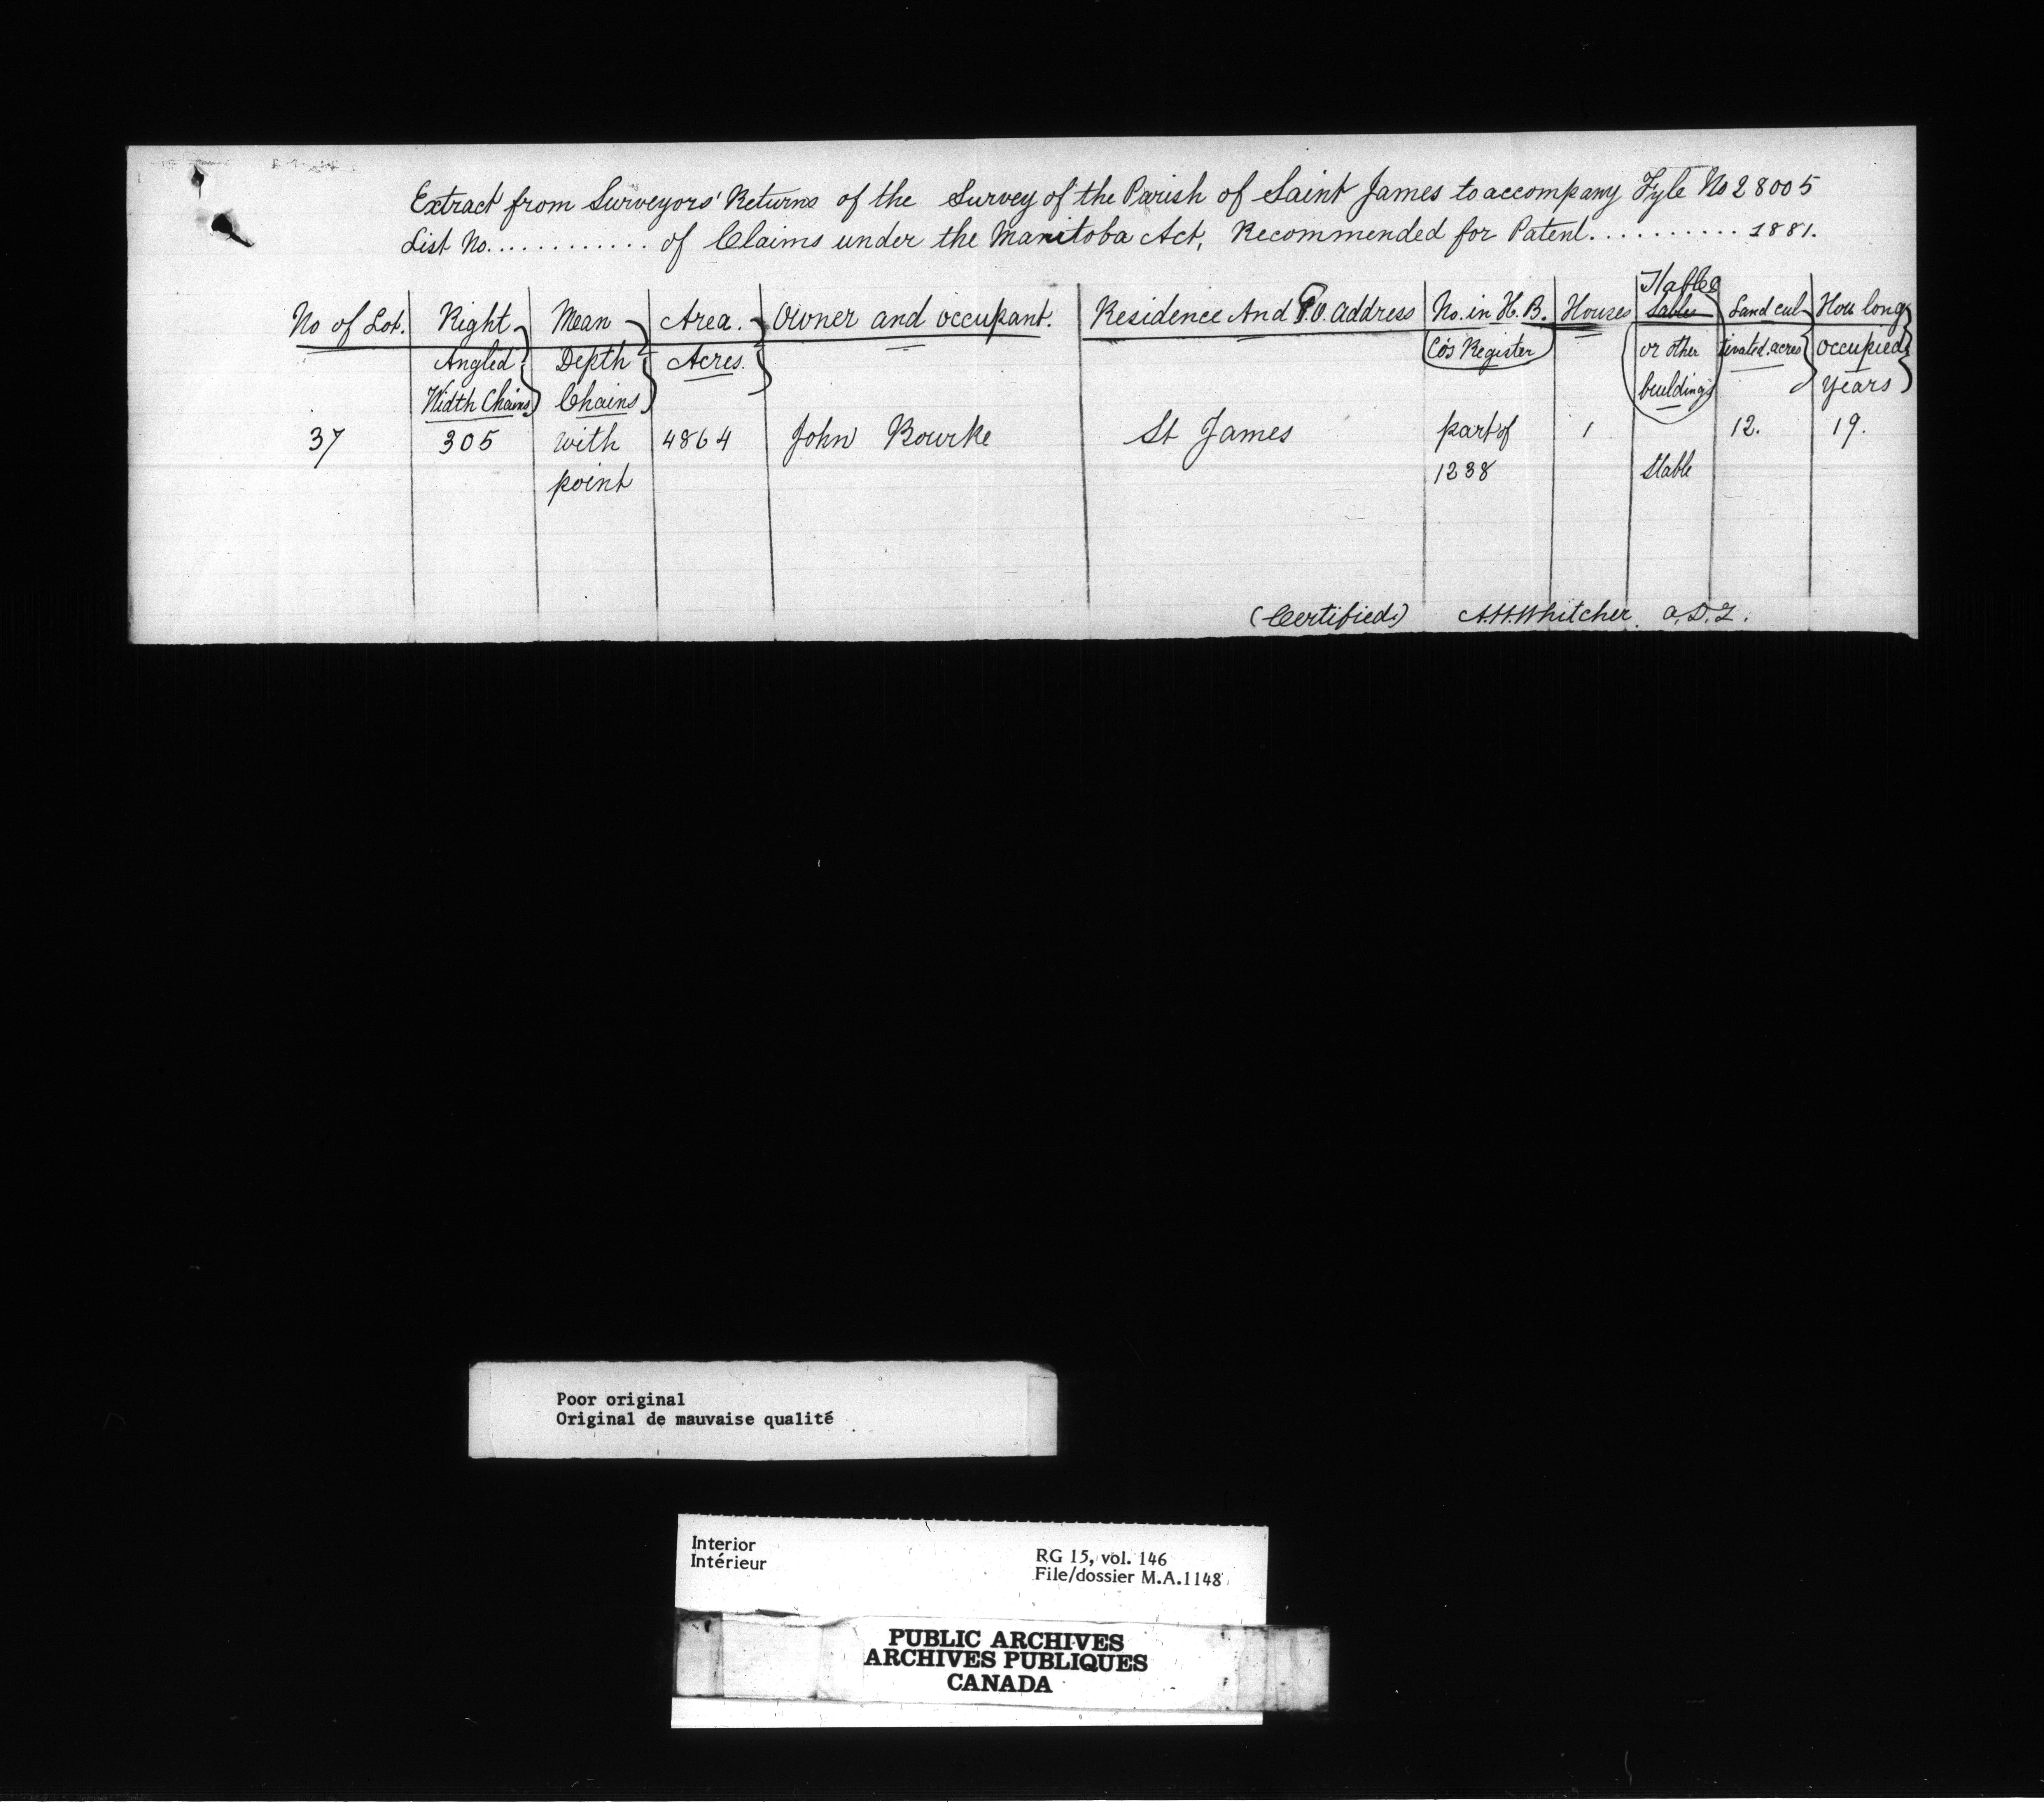 Extract from Surveyors' Returns of the Survey of the Parish of Saint James to accompany Fyle No 28005
List No. ........... of Claims under the Manitoba Act, Recommended for Patent. ......... 1881.
No of Lot. Right Angled Width Chains Mean Depth Chains Area. Acres. Owner and occupant. Residence And P.O. address No. in H.B. Co's Register Houses Stables Sables or other buildings Land cultivated acres How long occupied years
37 305 with point 4864 John Bourke St James part of 1238 1 Stable 12. 19.
(Certified.) A.H. Whitcher.
Poor original
Original de mauvaise qualité
Interior
Intérieur
RG 15, vol. 146
File/dossier M.A.1148
PUBLIC ARCHIVES
ARCHIVES PUBLIQUES
CANADA